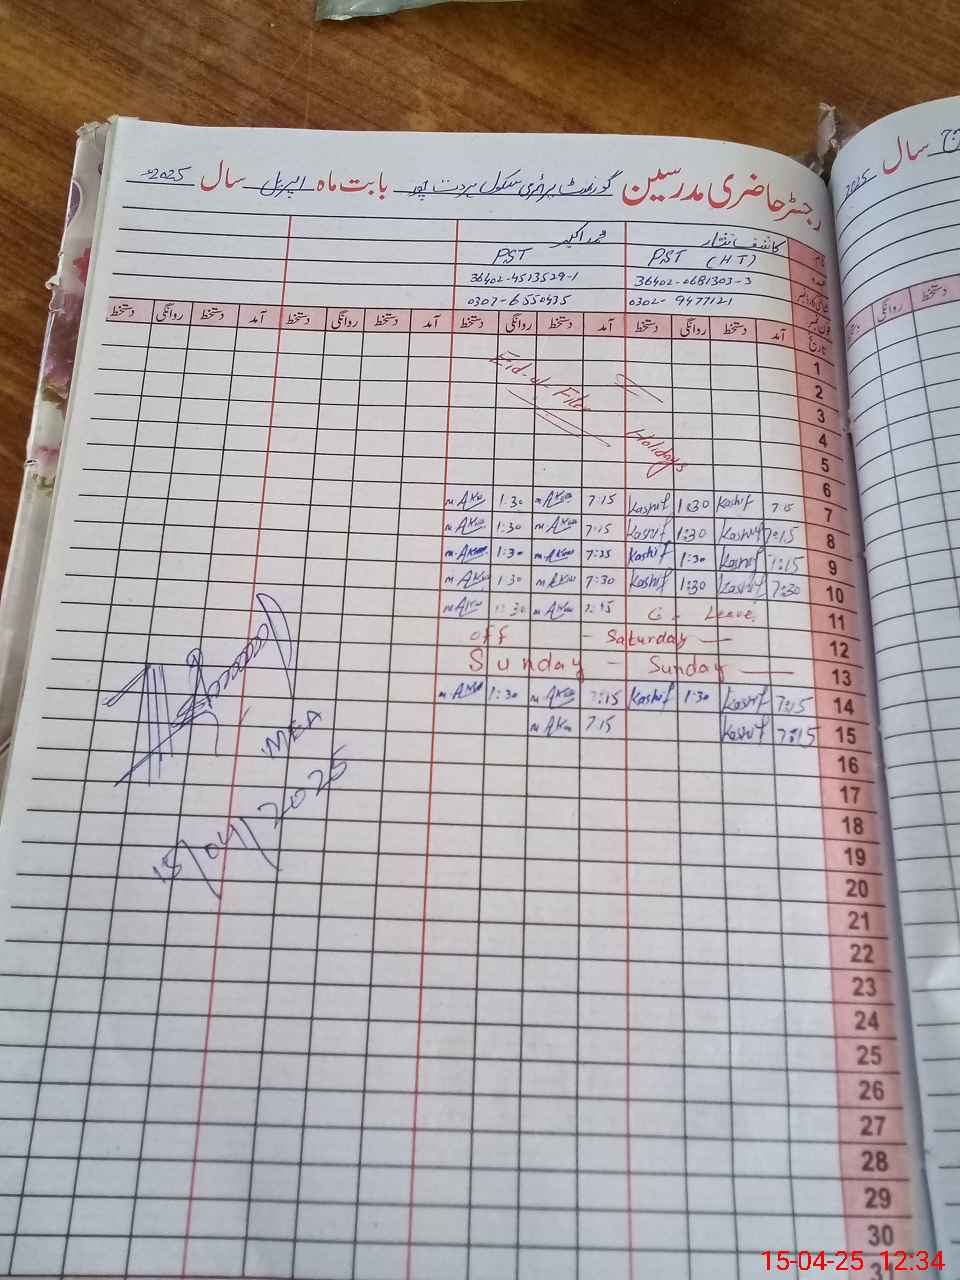 رجسٹر حاضری مدرسین گورنمنٹ پرائمری سکول بابت ماہ اپریل سال 2025ء
نام کاشف نثار محمد اکبر
عہدہ PST (HT) PST
36402-0681303-3 36402-4513529-1
فون نمبر 0302-9477121 0307-6550435
تاریخ آمد دستخط روانگی دستخط آمد دستخط روانگی دستخط آمد دستخط روانگی دستخط آمد دستخط روانگی دستخط
1
2 Eid-ul-Fiter
3
4 Holidays
5
6
7 7:15 Kashif 1:30 Kashif 7:15 m Akb 1:30 m Akb
8 7:15 Kashif 1:30 Kashif 7:15 m Akb 1:30 m Akb
9 7:15 Kashif 1:30 Kashif 7:15 m Akb 1:30 m Akb
10 7:30 Kashif 1:30 Kashif 7:30 m Akb 1:30 m Akb
11 C. Leave 7:15 m Akb 1:30 m Akb
12 off - Saturday —
13 Sunday - Sunday —
14 7:15 Kashif 1:30 Kashif 7:15 m Akb 1:30 m Akb
15 7:15 Kashif 7:15 m Akb
16
17
18
19
20
21
22
23
24
25
26
27
28
29
30
31
MEA
15/04/2025
سال 2025
روانگی دستخط
15-04-25 12:34